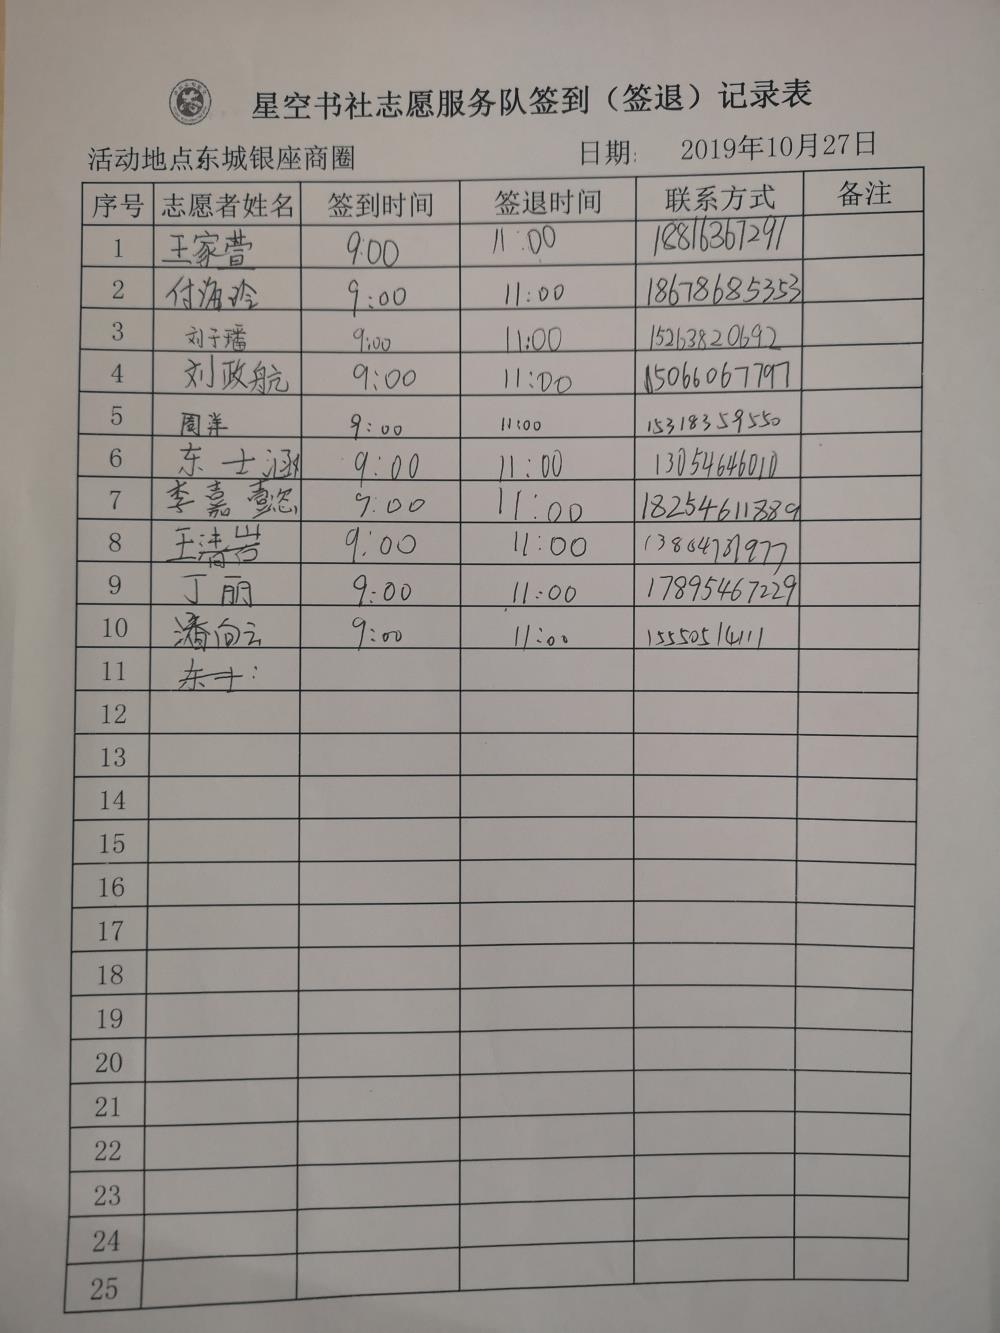 星空书社志愿服务队签到（签退）记录表
活动地点东城银座商圈 日期: 2019年10月27日
序号 志愿者姓名 签到时间 签退时间 联系方式 备注
1 王家萱 9:00 11:00 18816367291
2 付海玲 9:00 11:00 18678685353
3 刘于璠 9:00 11:00 15263820692
4 刘政航 9:00 11:00 15066067797
5 周洋 9:00 11:00 15318359550
6 东士涵 9:00 11:00 13054646010
7 李嘉懿 9:00 11:00 18254611889
8 王清岩 9:00 11:00
9 丁丽 9:00 11:00 17895467229
10 潘向云 9:00 11:00 15550514111
11 东士
12
13
14
15
16
17
18
19
20
21
22
23
24
25